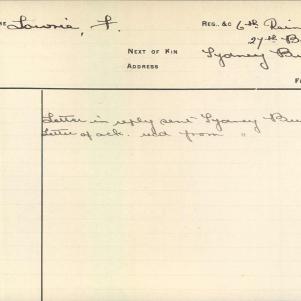 ME Lowrie, F. REG., &C 6th Rein
27th B
NEXT OF KIN Sydney Bu
ADDRESS
F
Letter in reply sent Sydney Bu
Letter of ack. recd from "